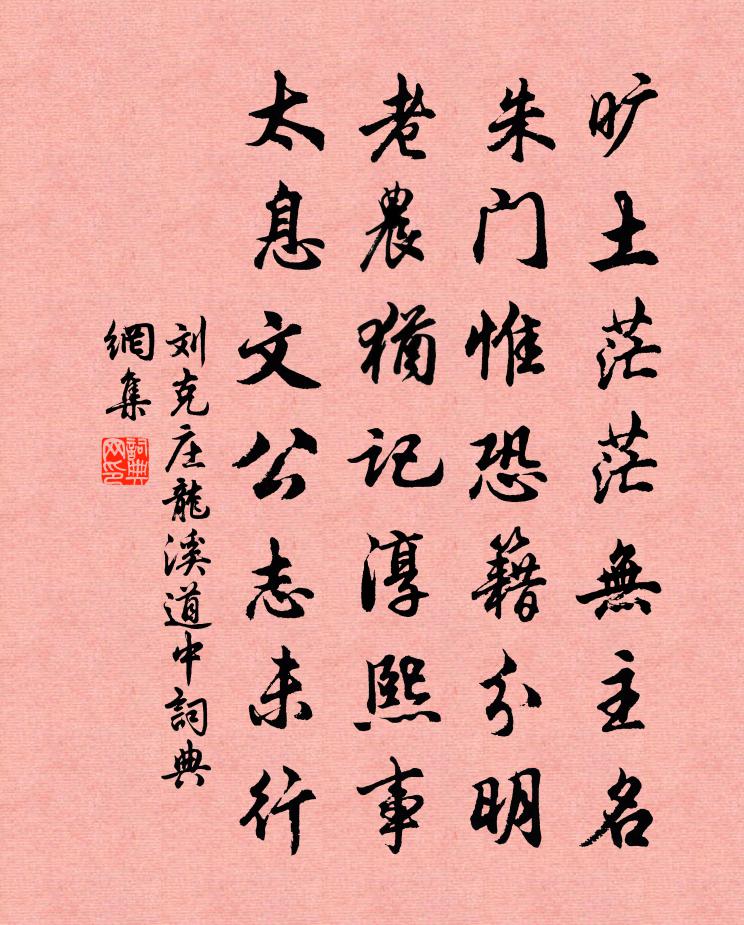 旷土茫茫無主名
朱门惟恐籍分明
老農猶记淳熙事
太息文公志未行
刘克庄龍溪道中詞典
網集
詞典
网印